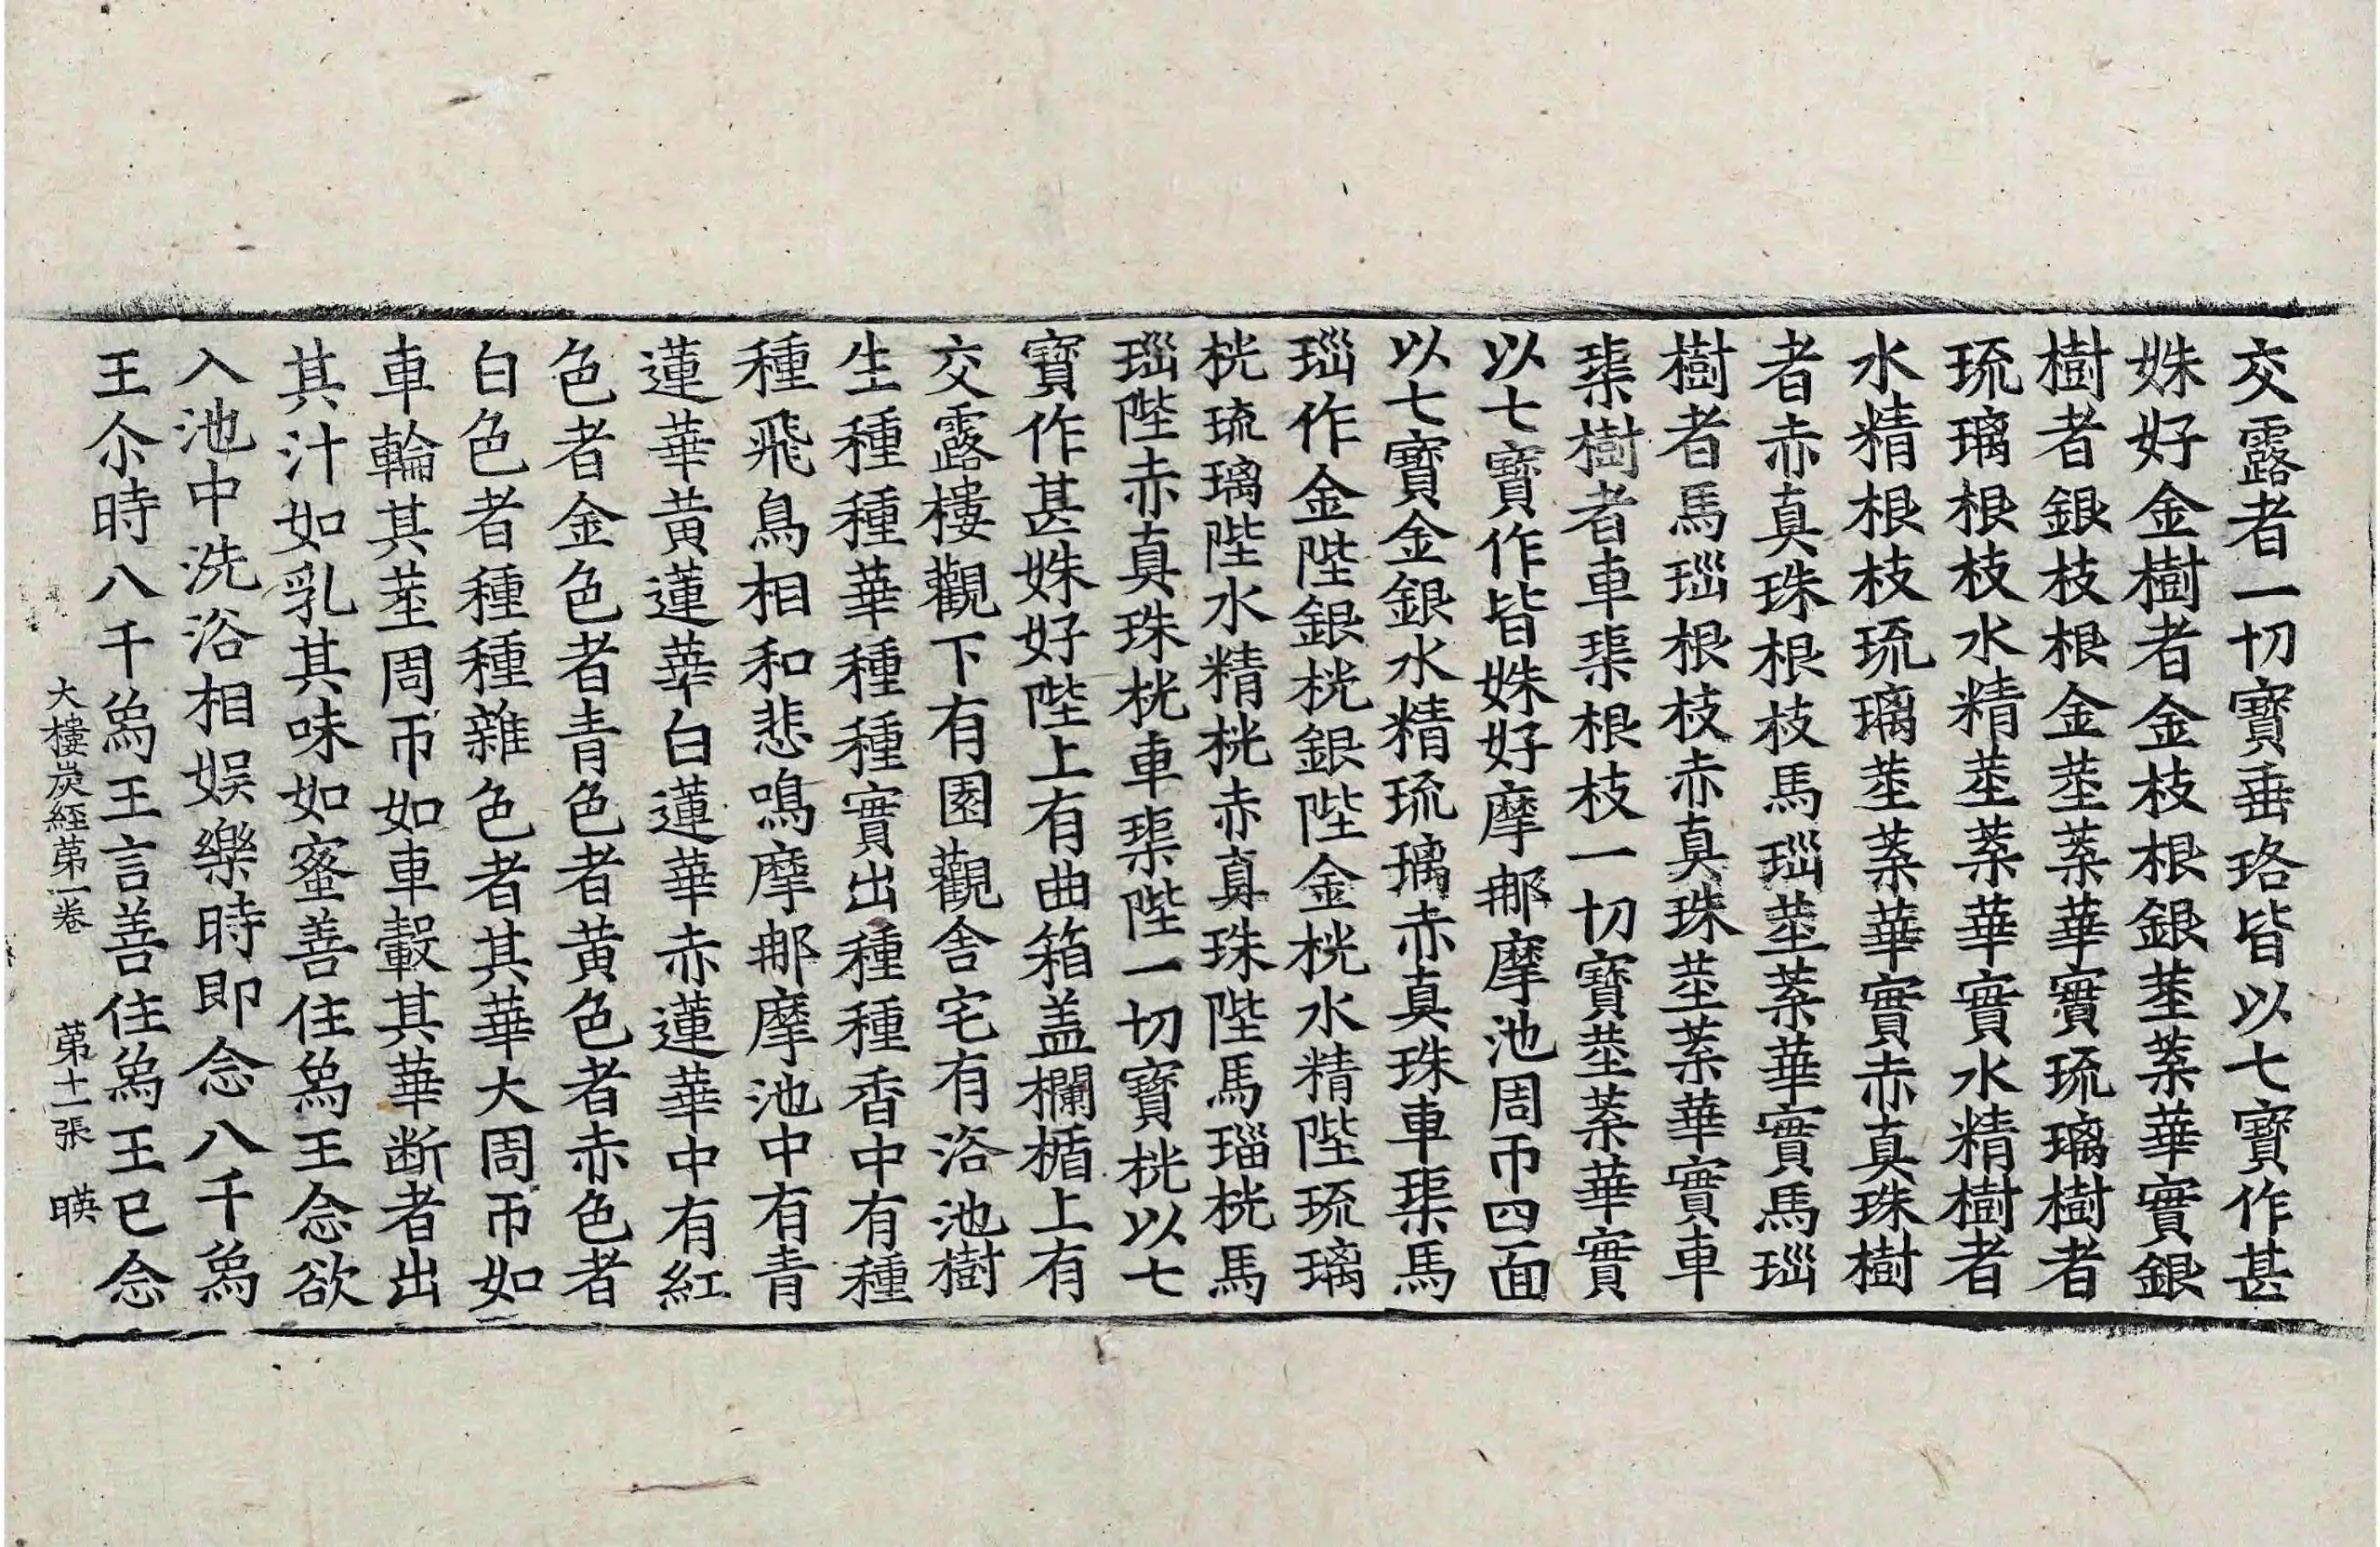 交露者一切寶垂珞皆以七寶作甚
姝好金樹者金枝根銀莖葉華實銀
樹者銀枝根金莖葉華實琉璃樹者
琉璃根枝水精莖葉華實水精樹者
水精根枝琉璃莖葉華實赤真珠樹
者赤真珠根枝馬瑙莖葉華實馬瑙
樹者馬瑙根枝赤真珠莖葉華實車
𤦲樹者車𤦲根枝一切寶莖葉華實
以七寶作皆姝好摩那摩池周帀四面
以七寶金銀水精琉璃赤真珠車𤦲馬
瑙作金陛銀桄銀陛金桄水精陛琉璃
桄琉璃陛水精桄赤真珠陛馬瑙桄馬
瑙陛赤真珠桄車𤦲陛一切寶桄以七
寶作甚姝好陛上有曲箱盖欄楯上有
交露樓觀下有園觀舍宅有浴池樹
生種種華種種實出種種香中有種
種飛鳥相和悲鳴摩那摩池中有青
蓮華黃蓮華白蓮華赤蓮華中有紅
色者金色者青色者黃色者赤色者
白色者種種雜色者其華大周帀如
車輪其莖周帀如車轂其華断者出
其汁如乳其味如蜜善住為王念欲
入池中洗浴相娛樂時即念八千為
王尒時八千為王言善住為王已念
大樓炭経苐一卷　苐十一張　暎